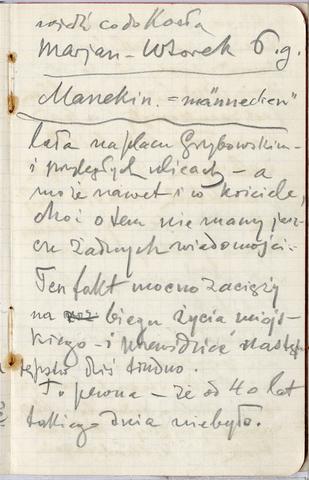 wejdź co do Karła
Marjan - Wtorek 6.g.
Manekin. = männechen"
lała na placu Grzybowskim -
i przyległych ulicach - a
może nawet i w kościele,
choć o tem nie mamy jesz-
cze żadnych wiadomości.
Ten fakt mocno zaciąży
na biegu życia miejs-
kiego - i przewidzieć następ-
stwa dziś trudno.
To pewna - że od 40 lat
takiego dnia nie było.